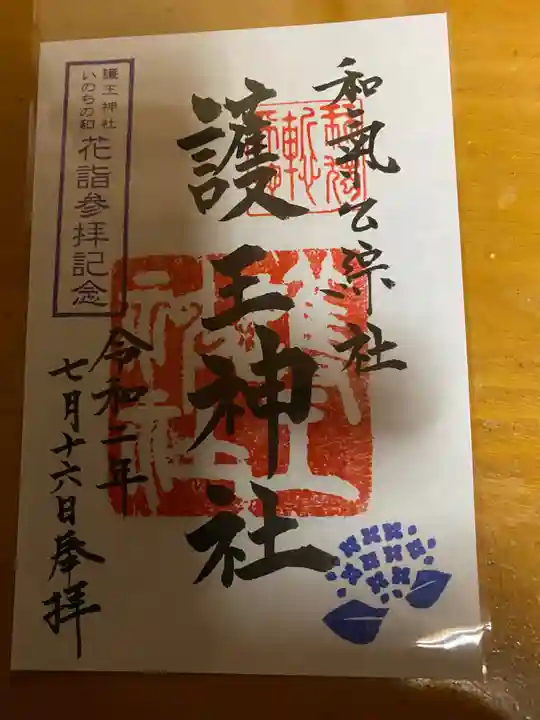 和氣公綜社
護王神社
令和二年
七月十六日奉拝
護王神社
いのちの和
花詣参拝記念